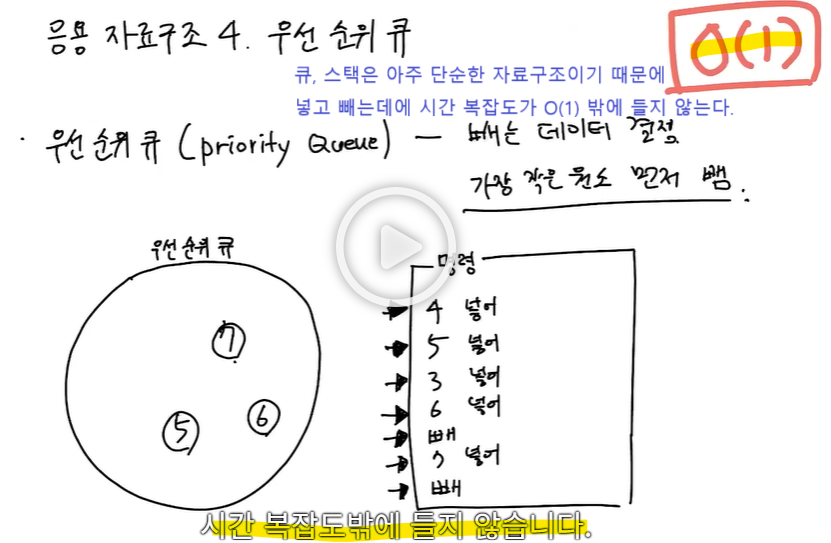 응용 자료구조 4. 우선 순위 큐
O(1)
큐, 스택은 아주 단순한 자료구조이기 때문에
넣고 빼는데에 시간 복잡도가 O(1) 밖에 들지 않는다.
· 우선순위 큐 (priority Queue) — 빼는 데이터 결정
가장 작은 원소 먼저 뺌.
우선순위 큐
7
5
6
명령
4 넣어
5 넣어
3 넣어
6 넣어
빼
7 넣어
빼
시간 복잡도밖에 들지 않습니다.